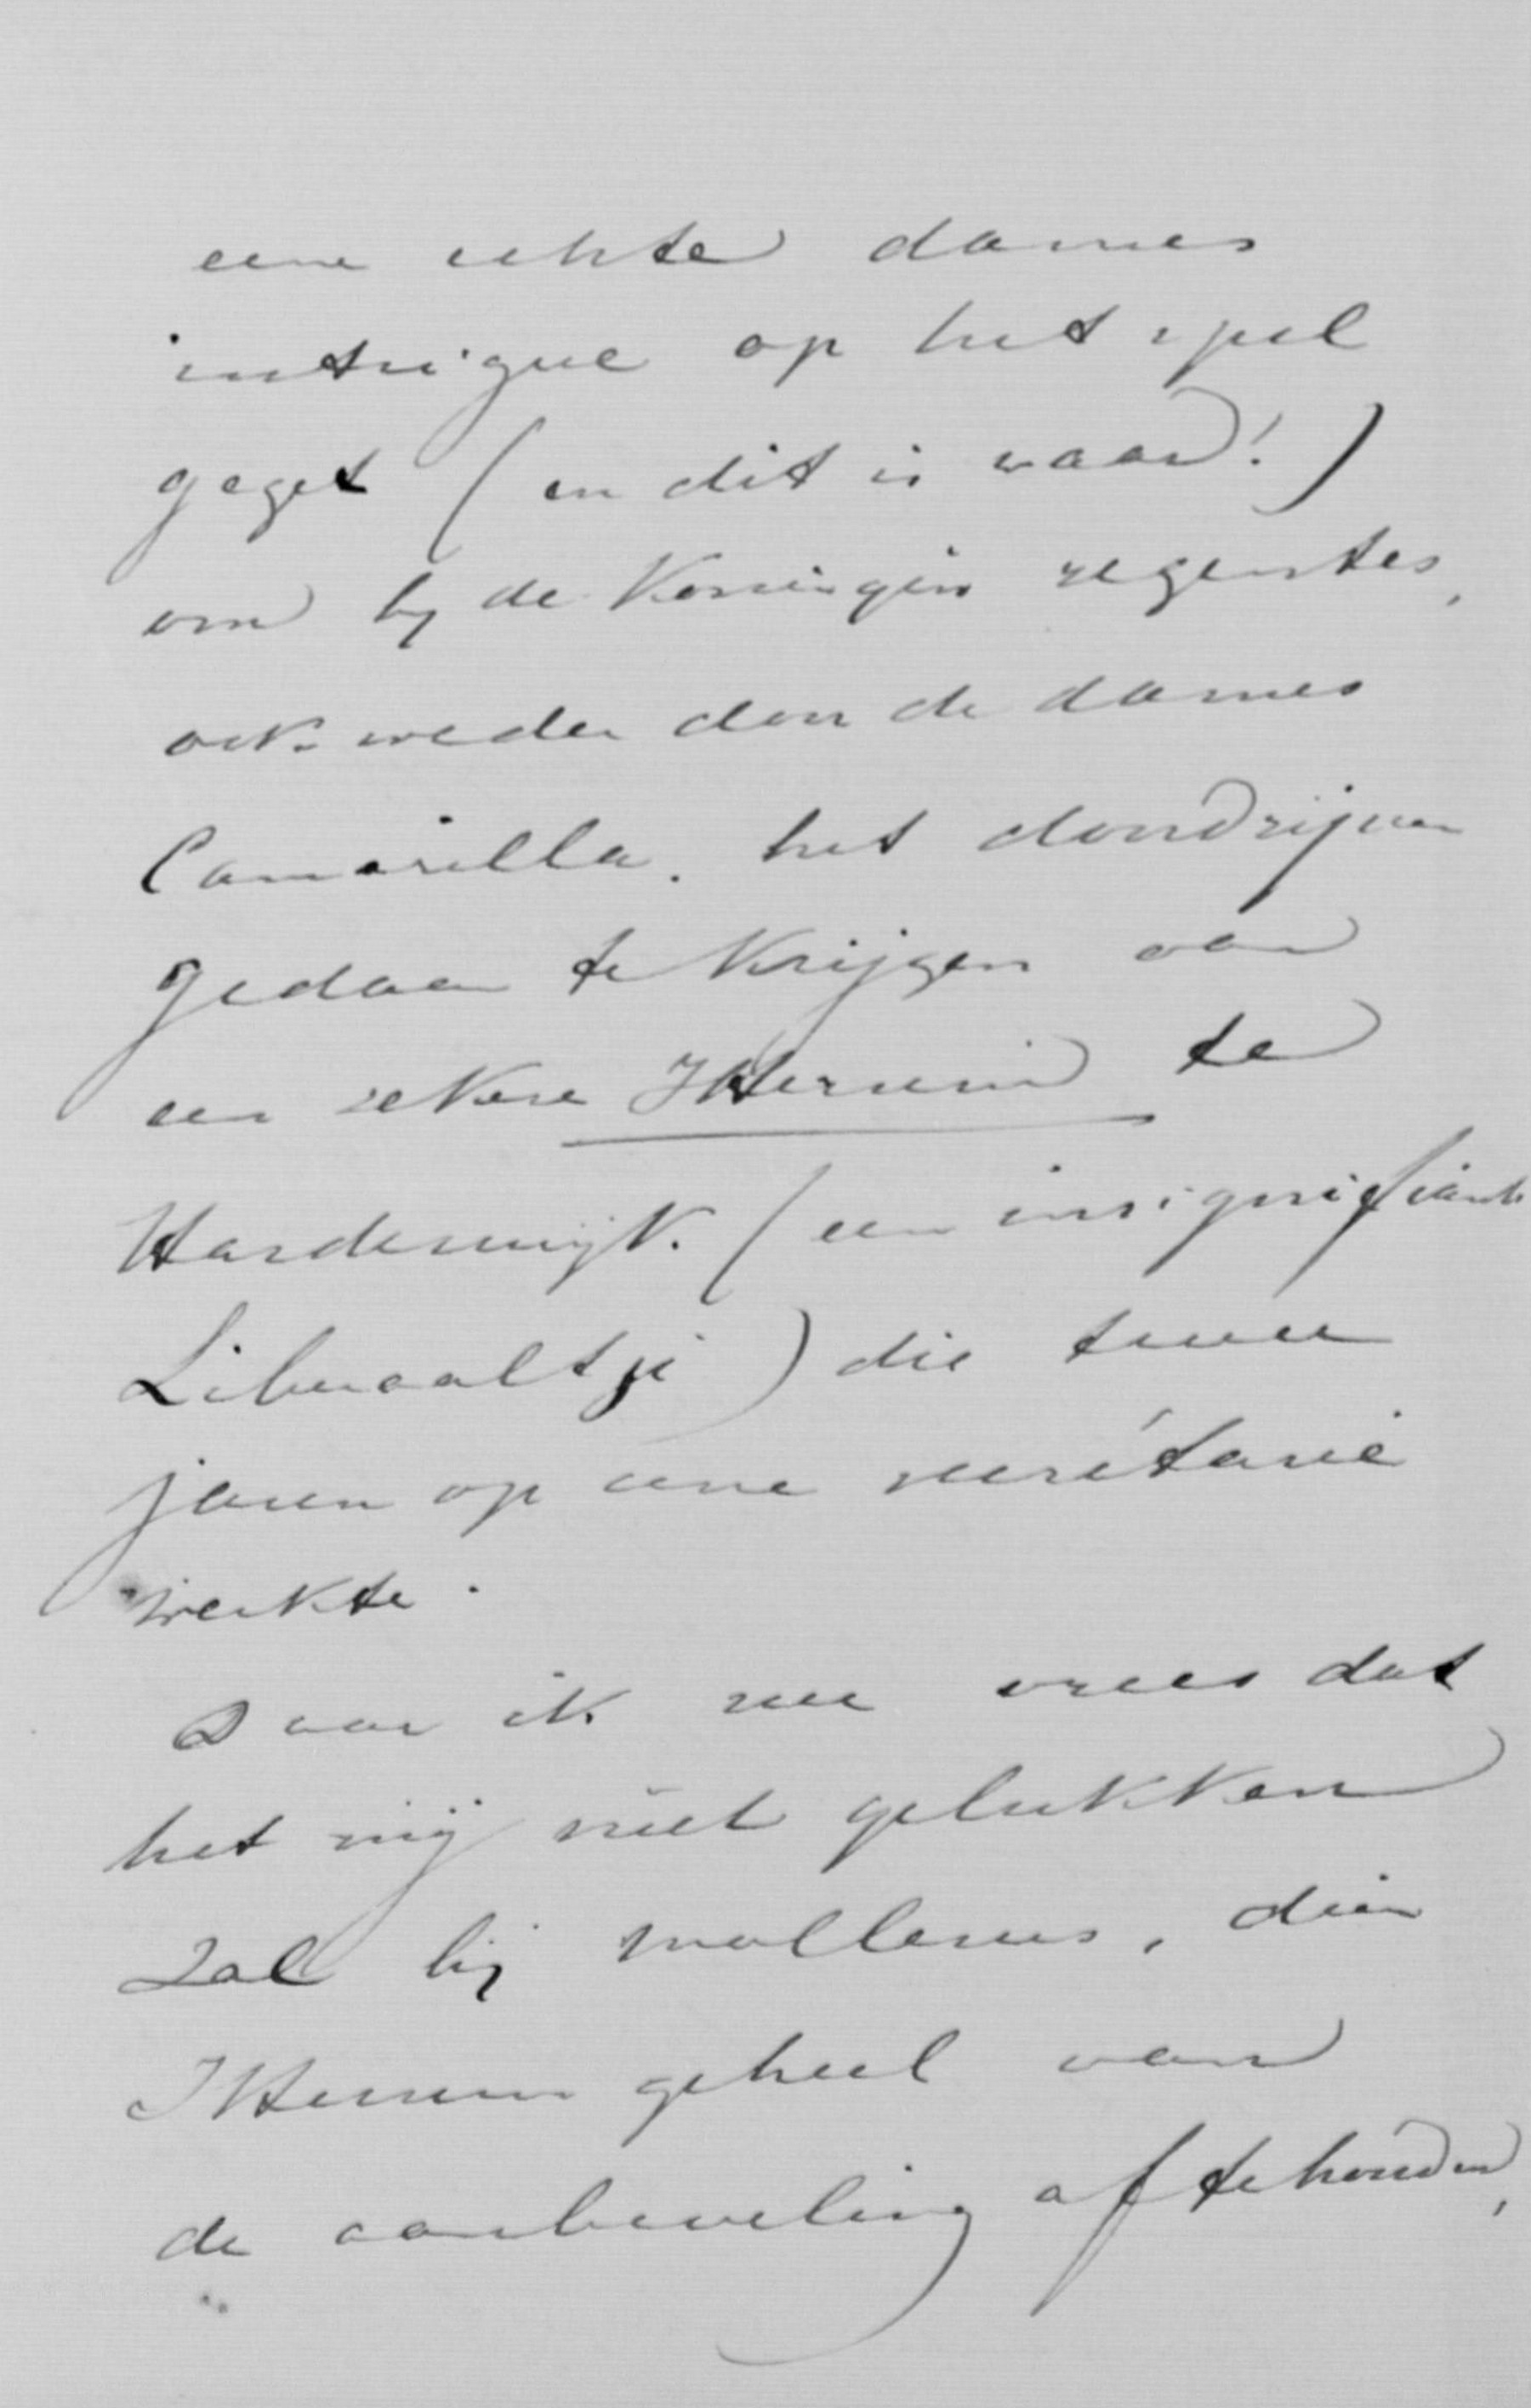 eene echte dames
intrigue op het spel
gezet (en dit is waar!)
om bij de Koningin regentes,
ook weder door de dames
Camarilla. het doordrijven
gedaan te krijgen van
een zekere te
Harderwijk. (een insignifiant
Liberaaltje) die twee
jaren op eene secrétarie
werkte.
Daar ik nu vrees dat
het mij niet gelukken
zal bij Mollerus, dien
geheel van
de aanbeveling af te houden,